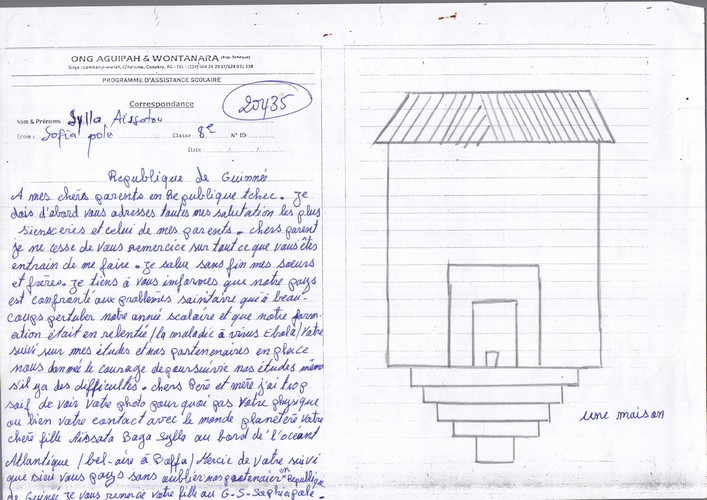 ONG AGUIPAH & WONTANARA (Rep. Tchèque)
PROGRAMME D'ASSISTANCE SCOLAIRE
Correspondance
20435
Nom & Prénoms : Sylla Aïssatou
Ecole : Sofia pole Classe : 8e N° ID
Date : / /
Republique de Guinneé
A mes chers parents en Republique tchec. Je
dois d'abord vous adresses toutes mes salutation les plus
siensceries et celui de mes parents. chers parent
je ne cesse de vous remercice sur tout ce que vous êtes
entrain de me faire. Je salue sans fin mes soeurs
et frères. Je tiens à vous informes que notre pays
est confrenté aux problèmes sainitaire qui à beau-
coups pertuber notre anneé scolaire et que notre form-
ation était en relentie/la maladie à virus Ebola/votre
suivi sur mes études et nos partennaires en place
nous donneé le courage de poursuivre nos études même
s'il ya des difficultés. chers Père et mère j'ai trop
soif de voir votre photo pourquoi pas votre physique
ou bien votre contact avec le monde planetère votre
chère fille Aissata Baga Sylla au bord de l'oceant
Atlantique /bel-aire à Boffa/ Mercie de votre suivi
que sur vous pays sans oublier nos partenaier en Republique
de Guineé Je vous remercie votre fille au G-S-Sophiapole.
une maison